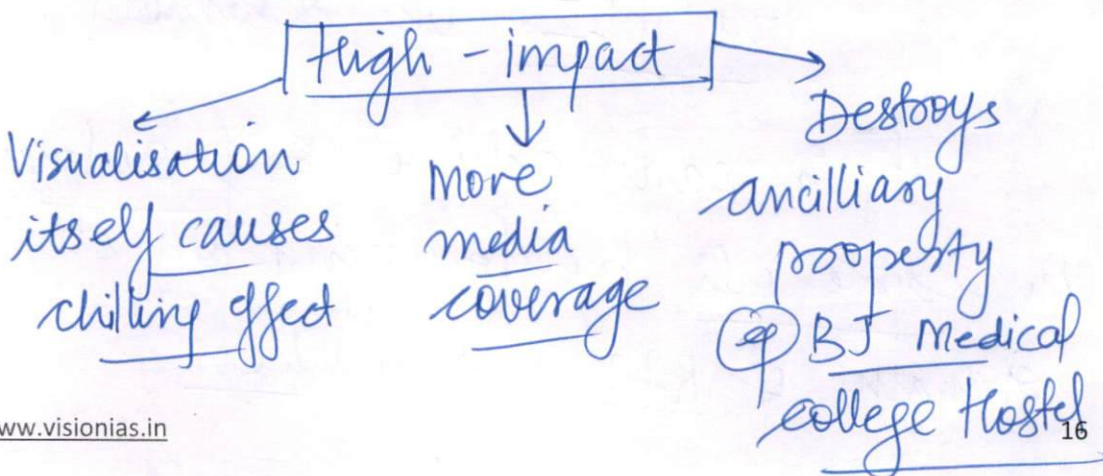 High - impact
Visualisation
itself causes
chilling effect
More
media
coverage
Destroys
ancilliary
property
eg BJ Medical
college Hostel
www.visionias.in
16